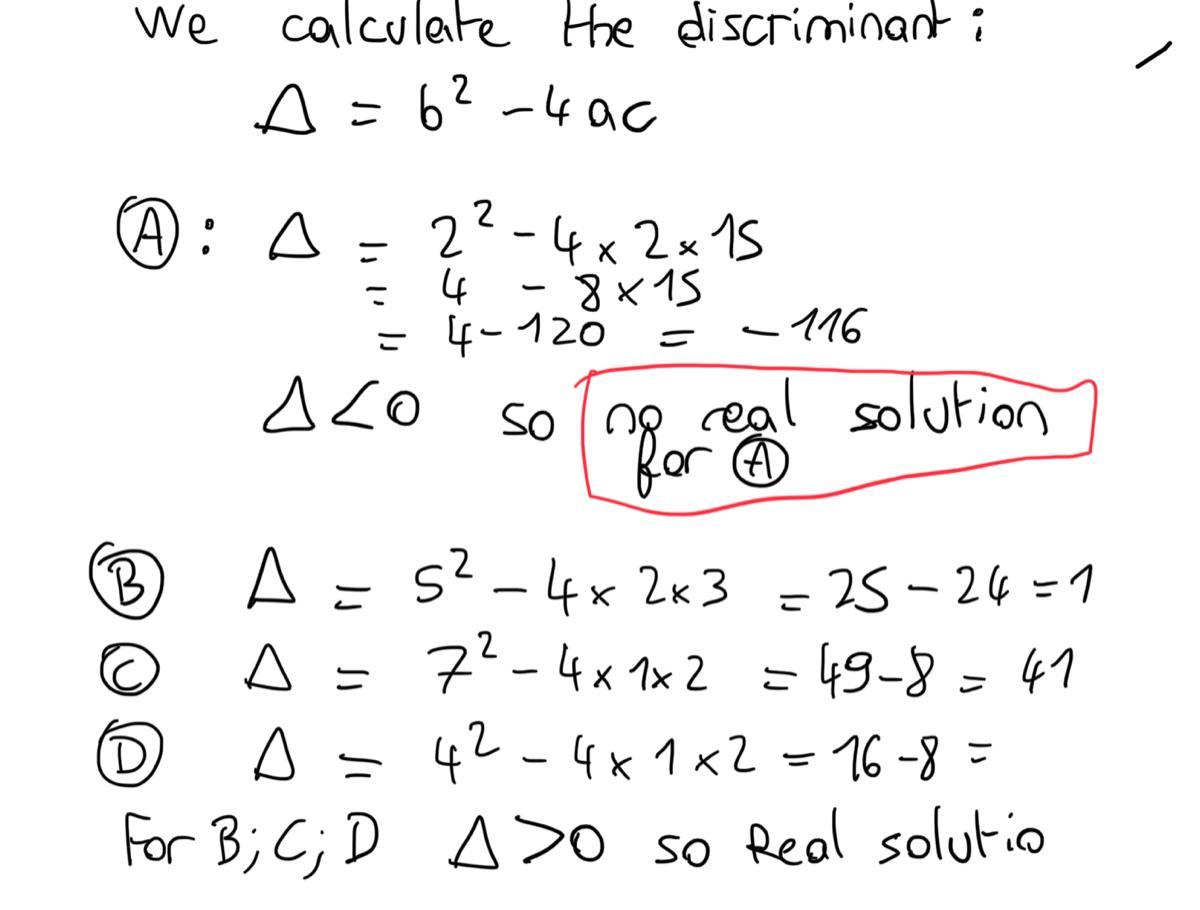 We calculate the discriminant:
Δ = b² - 4ac
Ⓐ: Δ = 2² - 4 × 2 × 15
= 4 - 8 × 15
= 4 - 120 = -116
Δ < 0 so no real solution
for Ⓐ
Ⓑ Δ = 5² - 4 × 2 × 3 = 25 - 24 = 1
Ⓒ Δ = 7² - 4 × 1 × 2 = 49 - 8 = 41
Ⓓ Δ = 4² - 4 × 1 × 2 = 16 - 8 =
For B; C; D Δ > 0 so Real solutio